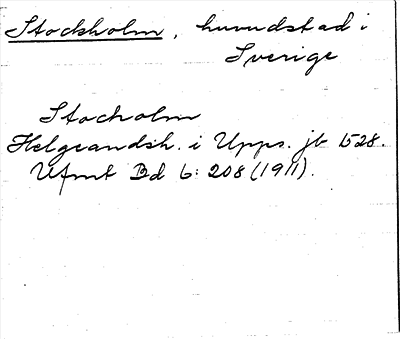 Stockholm, huvudstad i
Sverige
Stocholm
Helgeandsh. i Upps. jb 1528.
Ufmt Bd 6: 208 (1911).